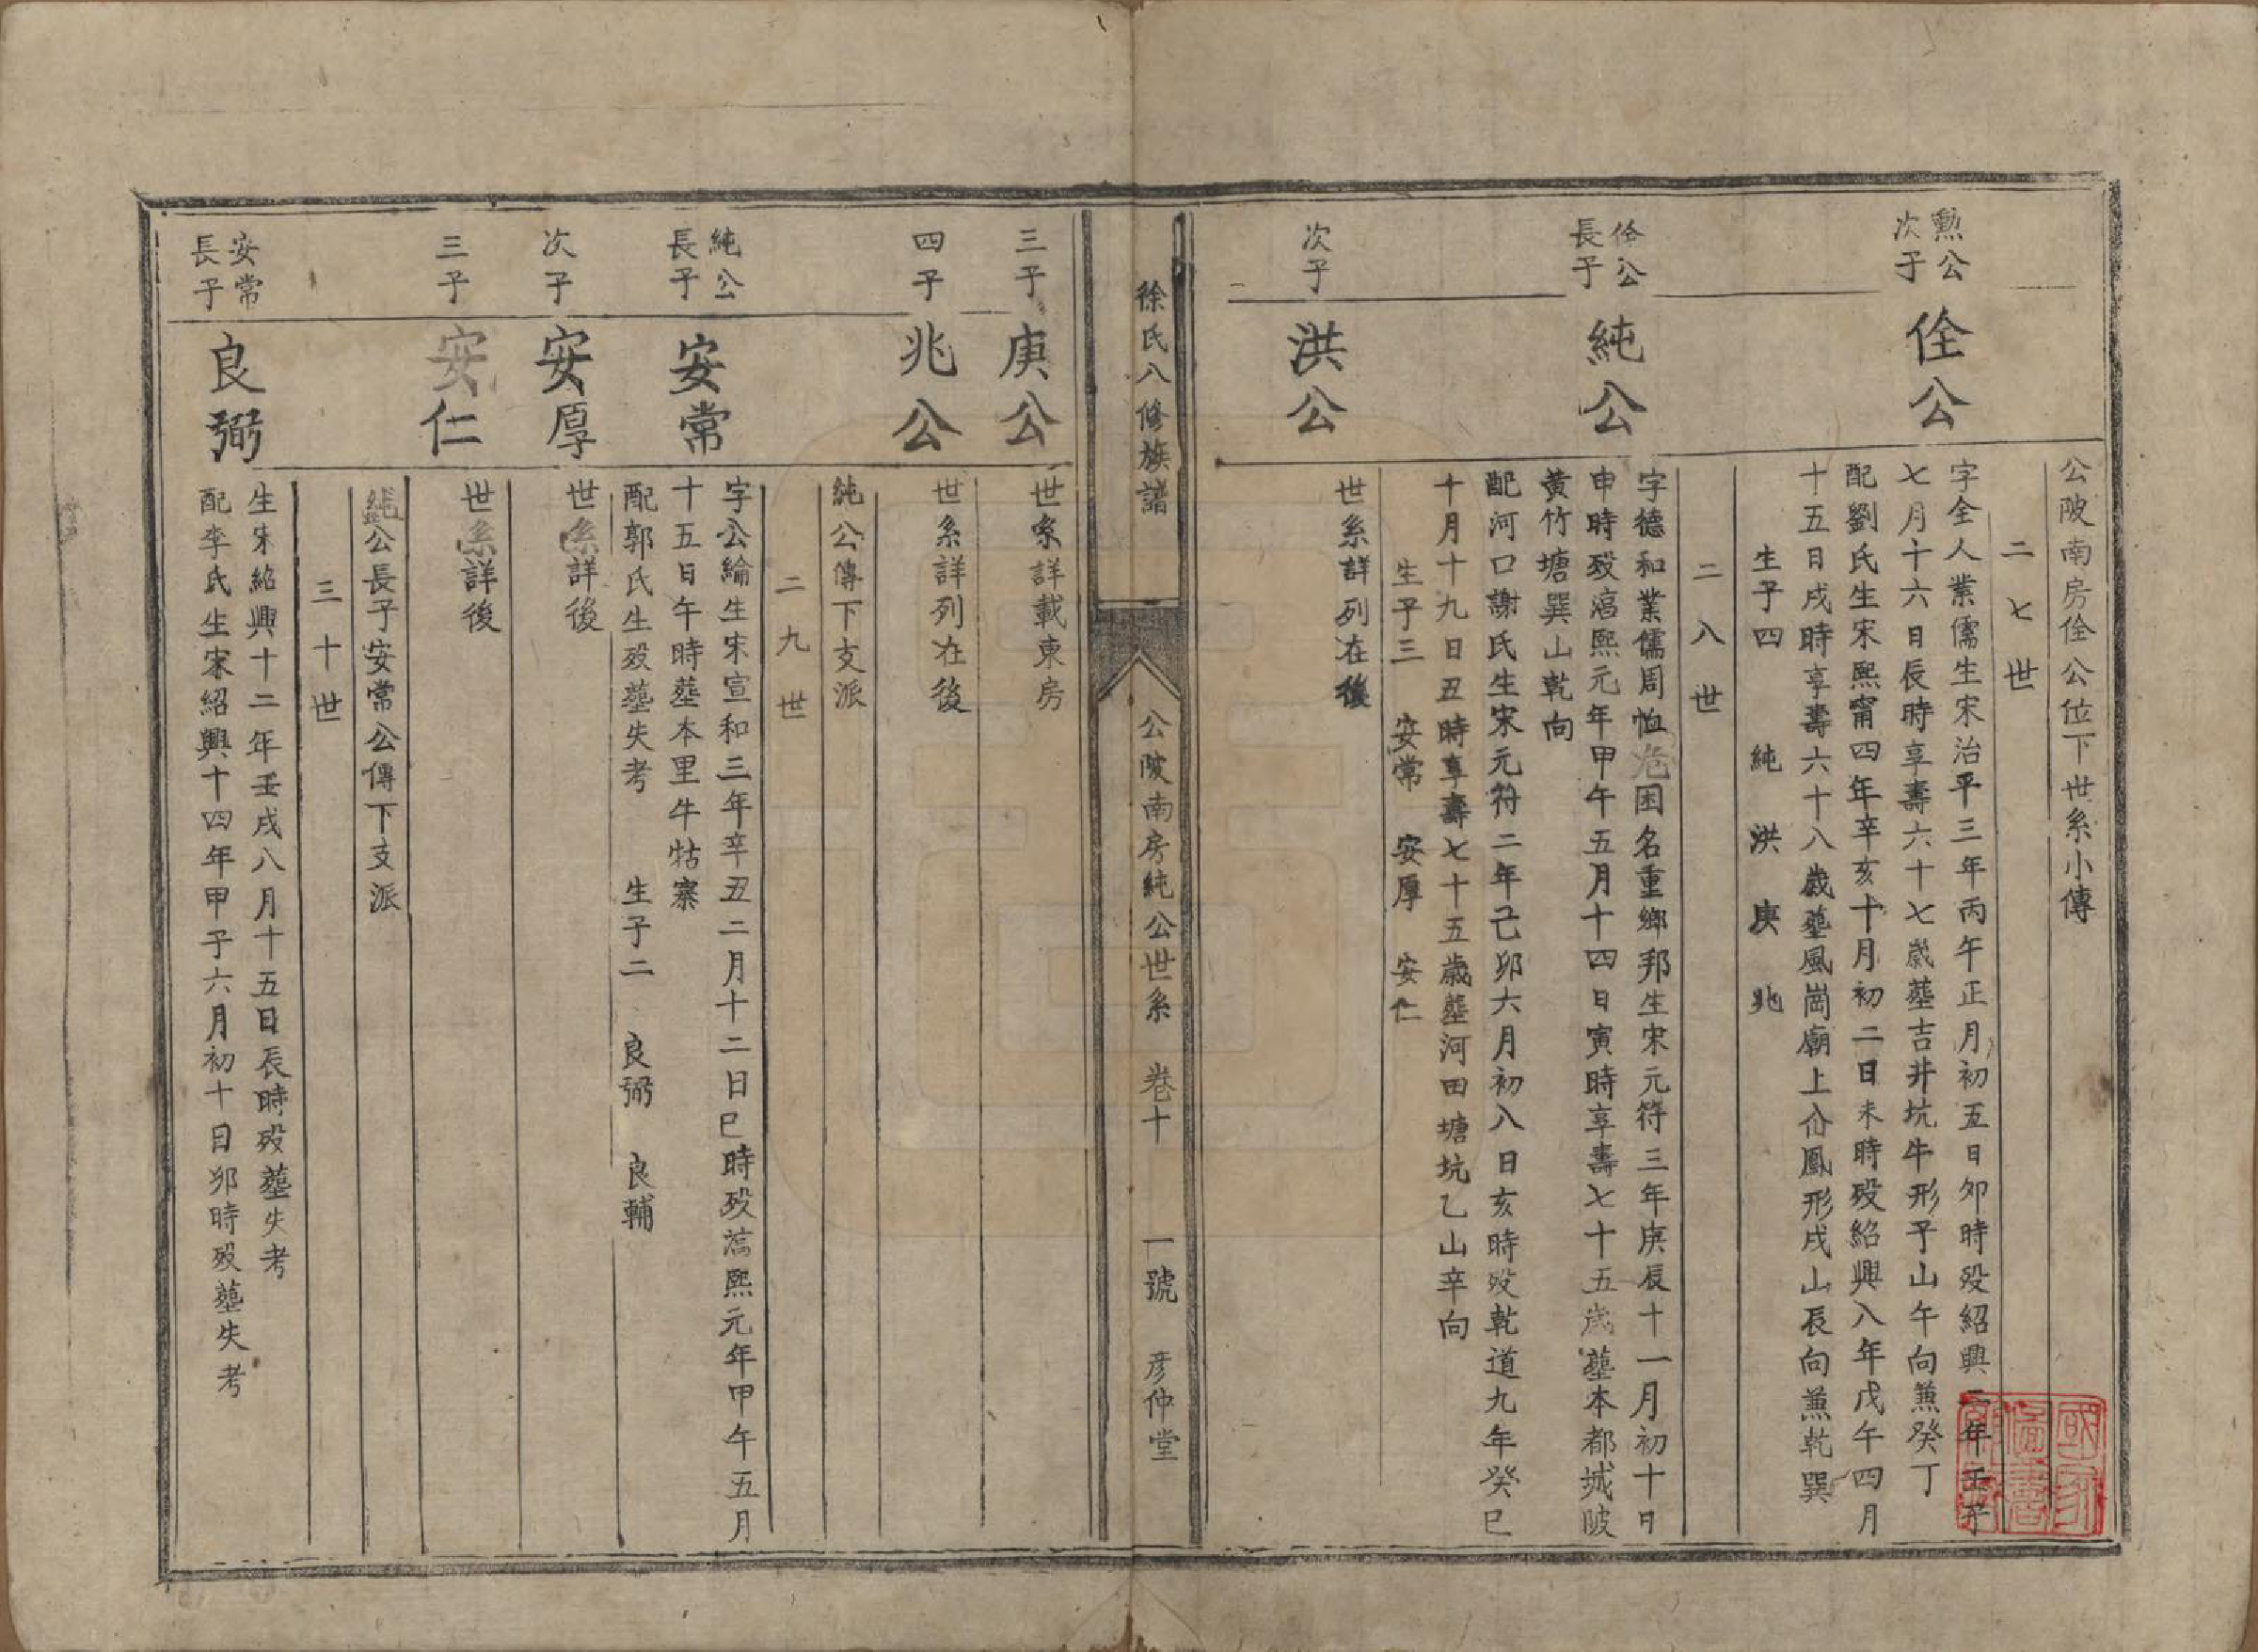 公陂南房佺公位下世系小傳
二七世
勲公
次子
佺公
字全人業儒生宋治平三年丙午正月初五日夘時殁紹興二年壬子
七月十六日辰時享壽六十七歲塟吉井坑牛形子山午向兼癸丁
配劉氏生宋熙甯四年辛亥十月初二日未時殁紹興八年戊午四月
十五日戌時享壽六十八歲塟風崗廟上仚鳳形戌山辰向兼乾巽
生子四 純 洪 庚 兆
二八世
佺公
長子
純公
字德和業儒周恤危困名重鄉邦生宋元符三年庚辰十一月初十日
申時殁淳熙元年甲午五月十四日寅時享壽七十五歲塟本都城陂
黄竹塘巽山乾向
配河口謝氏生宋元符二年己卯六月初八日亥時殁乾道九年癸巳
十月十九日丑時享壽七十五歲塟河田塘坑乙山辛向
生子三 安常 安厚 安仁
次子
洪公
世系詳列在後
徐氏八修族譜
公陂南房純公世系 卷十
一號 彦仲堂
三子
庚公
世系詳載東房
四子
兆公
世系詳列在後
純公傳下支派
二九世
純公
長子
安常
字公綸生宋宣和三年辛丑二月十二日巳時殁淳熙元年甲午五月
十五日午時塟本里牛牯寨
配郭氏生殁塟失考 生子二 良弼 良輔
次子
安厚
世系詳後
三子
安仁
世系詳後
純公長子安常公傳下支派
三十世
安常
長子
良弼
生宋紹興十二年壬戌八月十五日辰時殁塟失考
配李氏生宋紹興十四年甲子六月初十日卯時殁塟失考